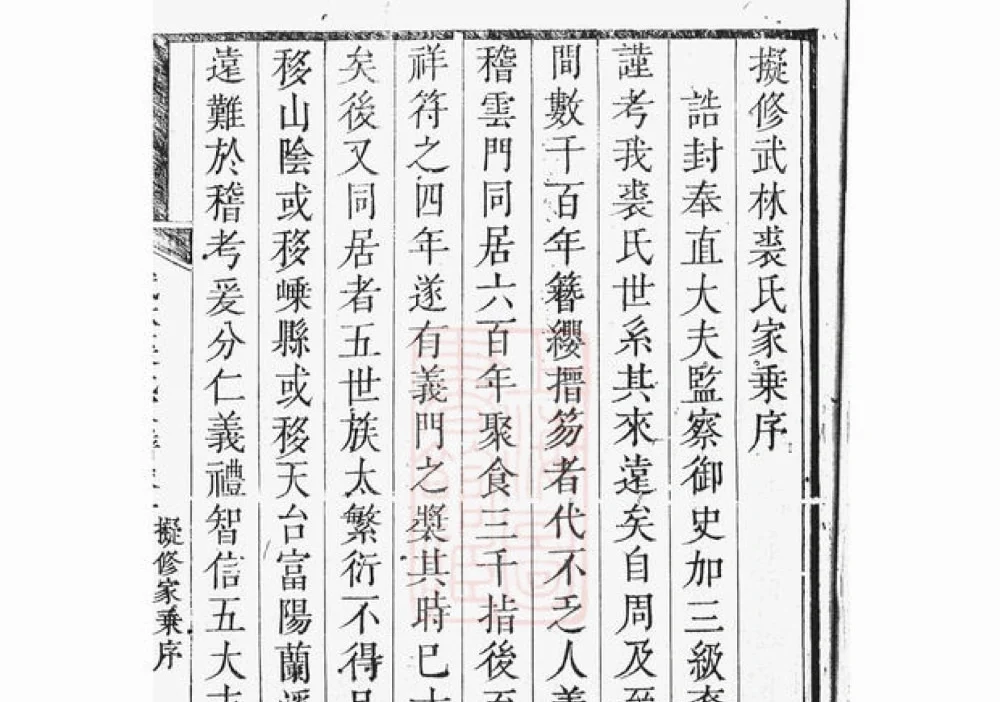 擬修武林裘氏家乗序
誥封奉直大夫監察御史加三級
謹考我裘氏世系其來遠矣自周及
間數千百年簪纓搢笏者代不乏人
稽雲門同居六百年聚食三千指後
祥符之四年遂有義門之奬其時已
矣後又同居者五世族太繁衍不得
移山陰或移嵊縣或移天台富陽蘭
遠難於稽考爰分仁義禮智信五大
擬修家乗序